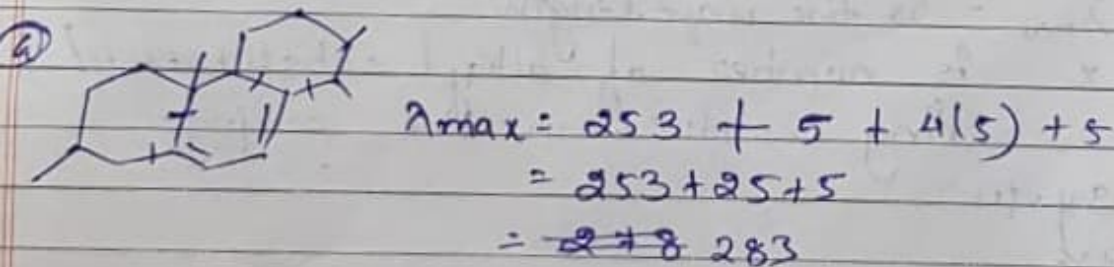 a
λmax = 253 + 5 + 4(5) + 5
= 253 + 25 + 5
= 278 283